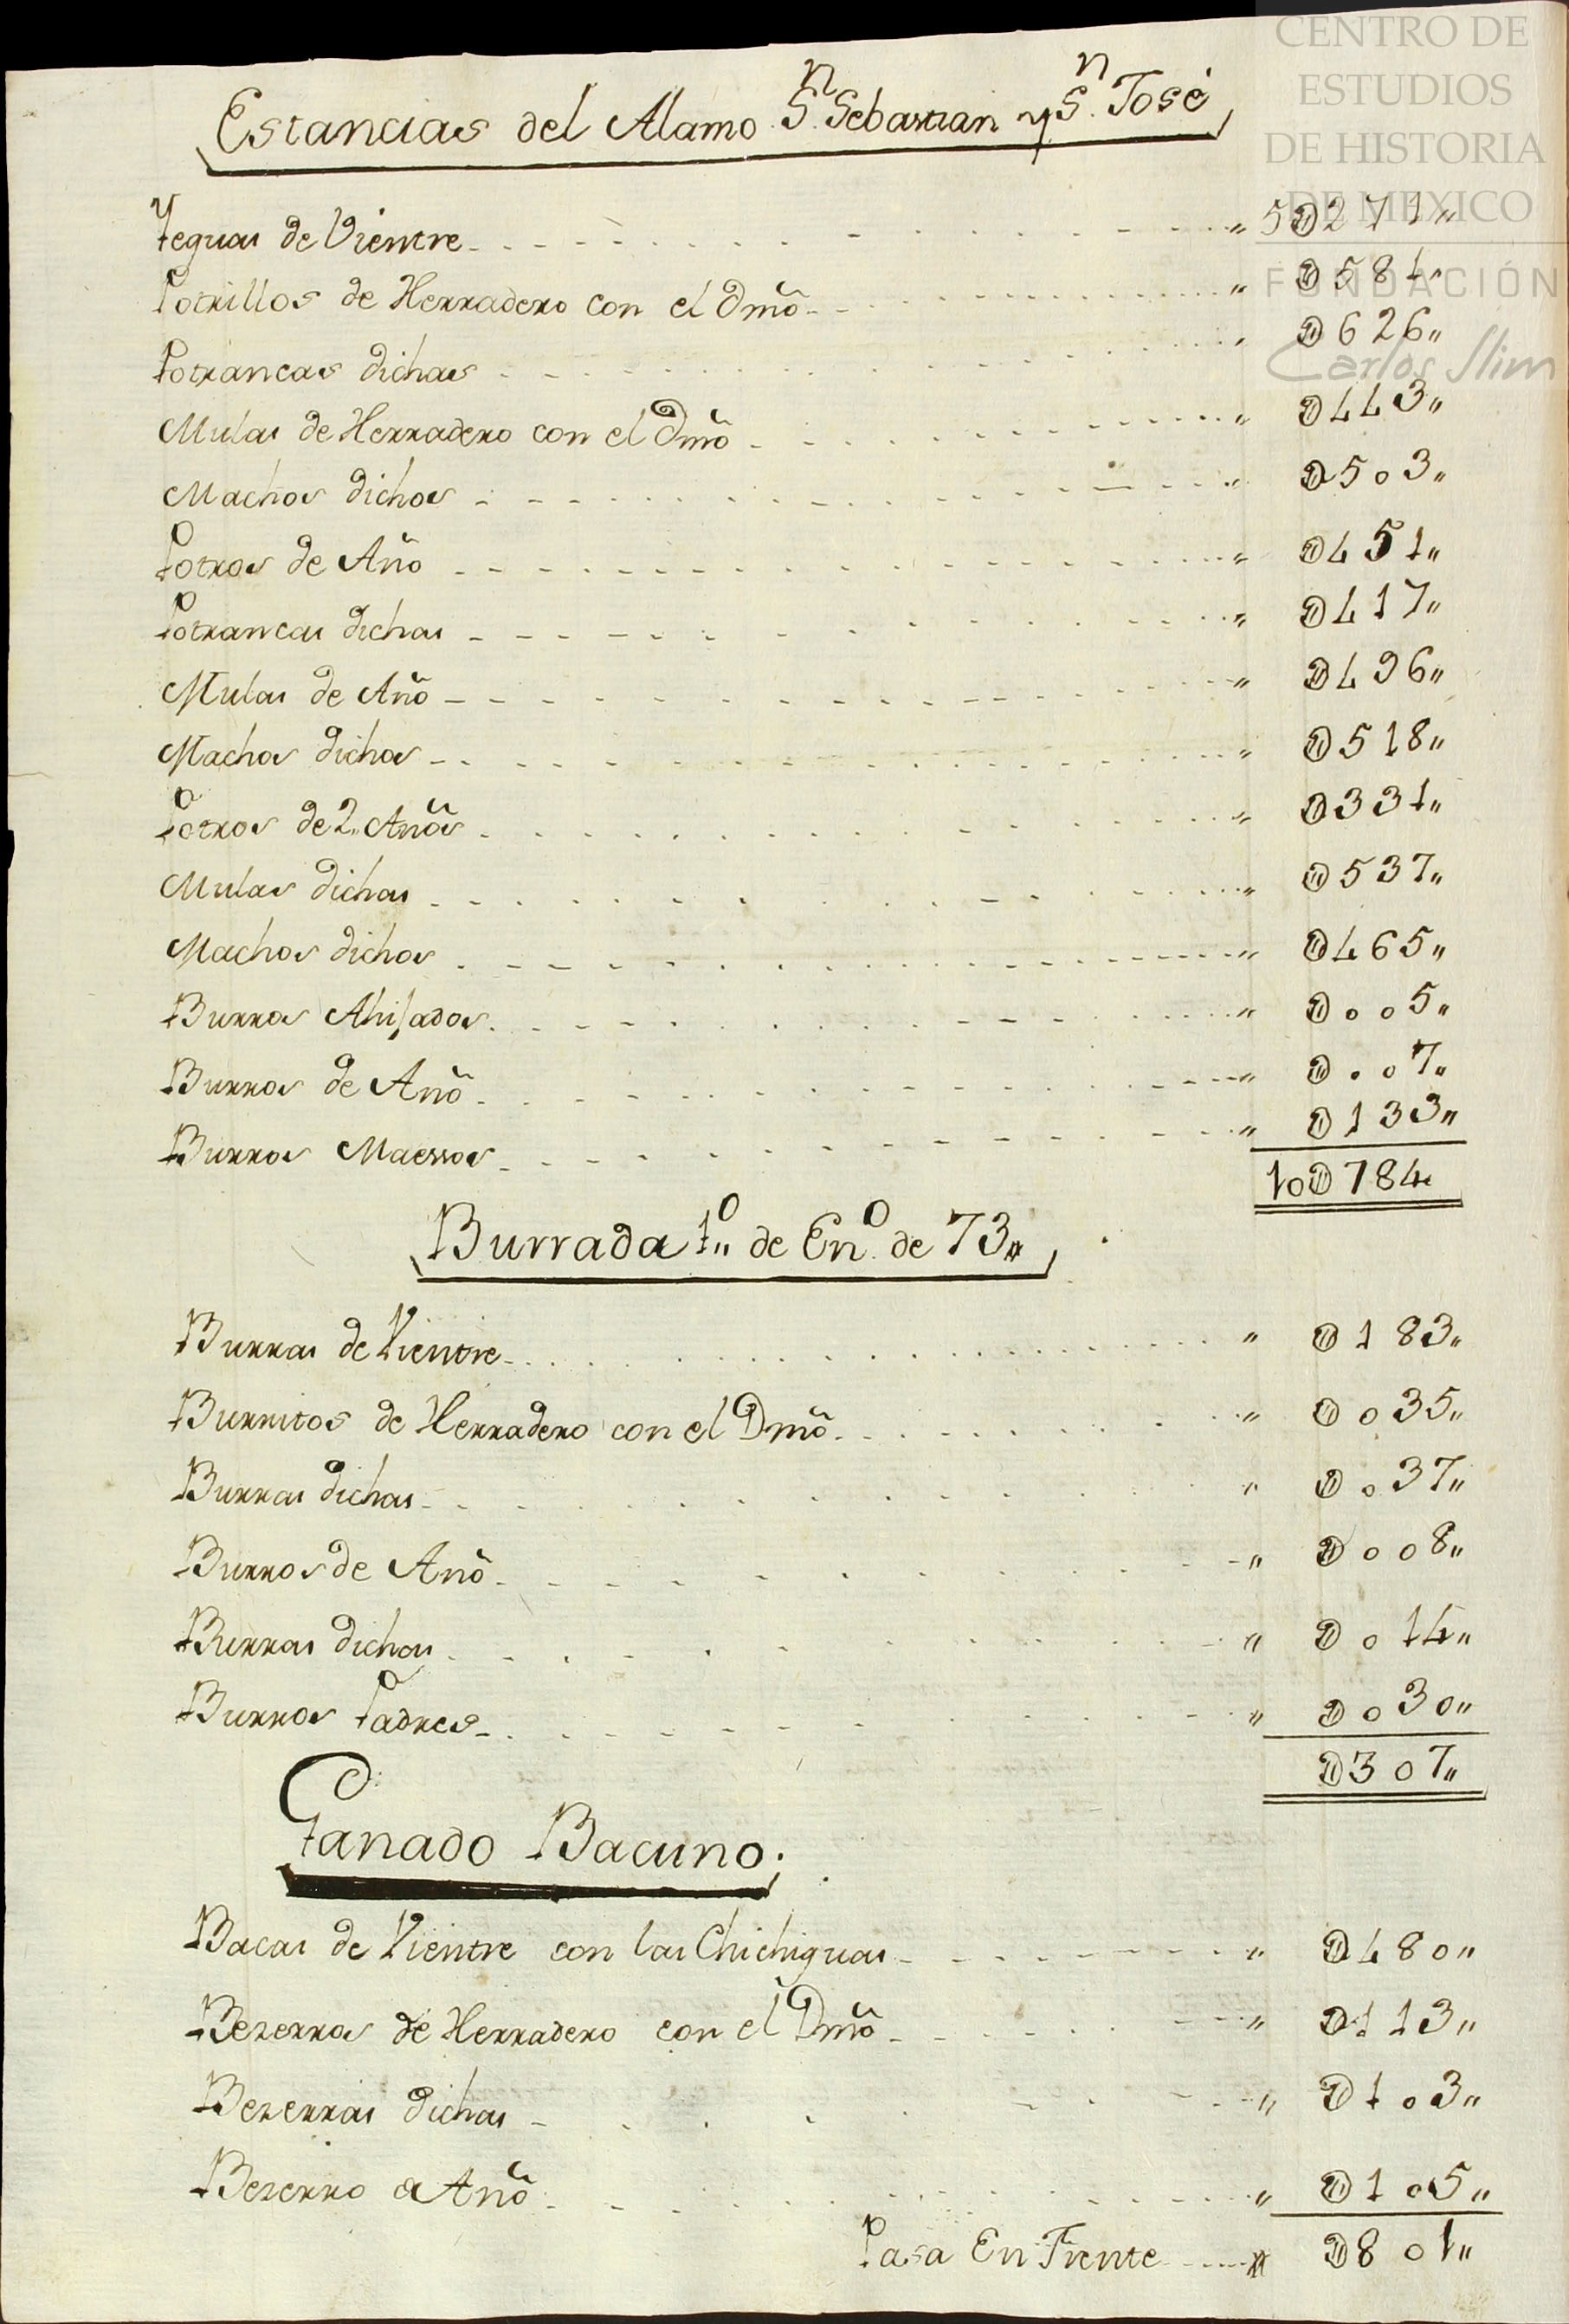 CENTRO DE
ESTUDIOS
DE HISTORIA
DE MEXICO
FUNDACIÓN
Carlos Slim
Estancias del Alamo Sⁿ. Sebastian y Sⁿ. José
Yeguas de Vientre " 5D271"
Potrillos de Herradero con el Dmõ " D581"
Potrancas dichas " D626"
Mulas de Herradero con el Dmõ " D443"
Machos dichos " D503"
Potros de Año " D451"
Potrancas dichas " D417"
Mulas de Año " D496"
Machos dichos " D518"
Potros de 2" Años " D331"
Mulas dichas " D537"
Machos dichos " D465"
Burros Ahijados " D005"
Burros de Año " D007"
Burros Maessos " D133"
10D784"
Burrada 1º" de Enº. de 73"
Burras de Vientre " D183"
Burritos de Herradero con el Dmõ " D035"
Burras dichas " D037"
Burros de Año " D008"
Burras dichas " D014"
Burros Padres " D030"
D307"
Ganado Bacuno.
Bacas de Vientre con las Chichiguas " D480"
Bezerros de Herradero con el Dmõ " D113"
Bezerras dichas " D103"
Bezerro de Año " D105"
Pasa En Frente " D801"